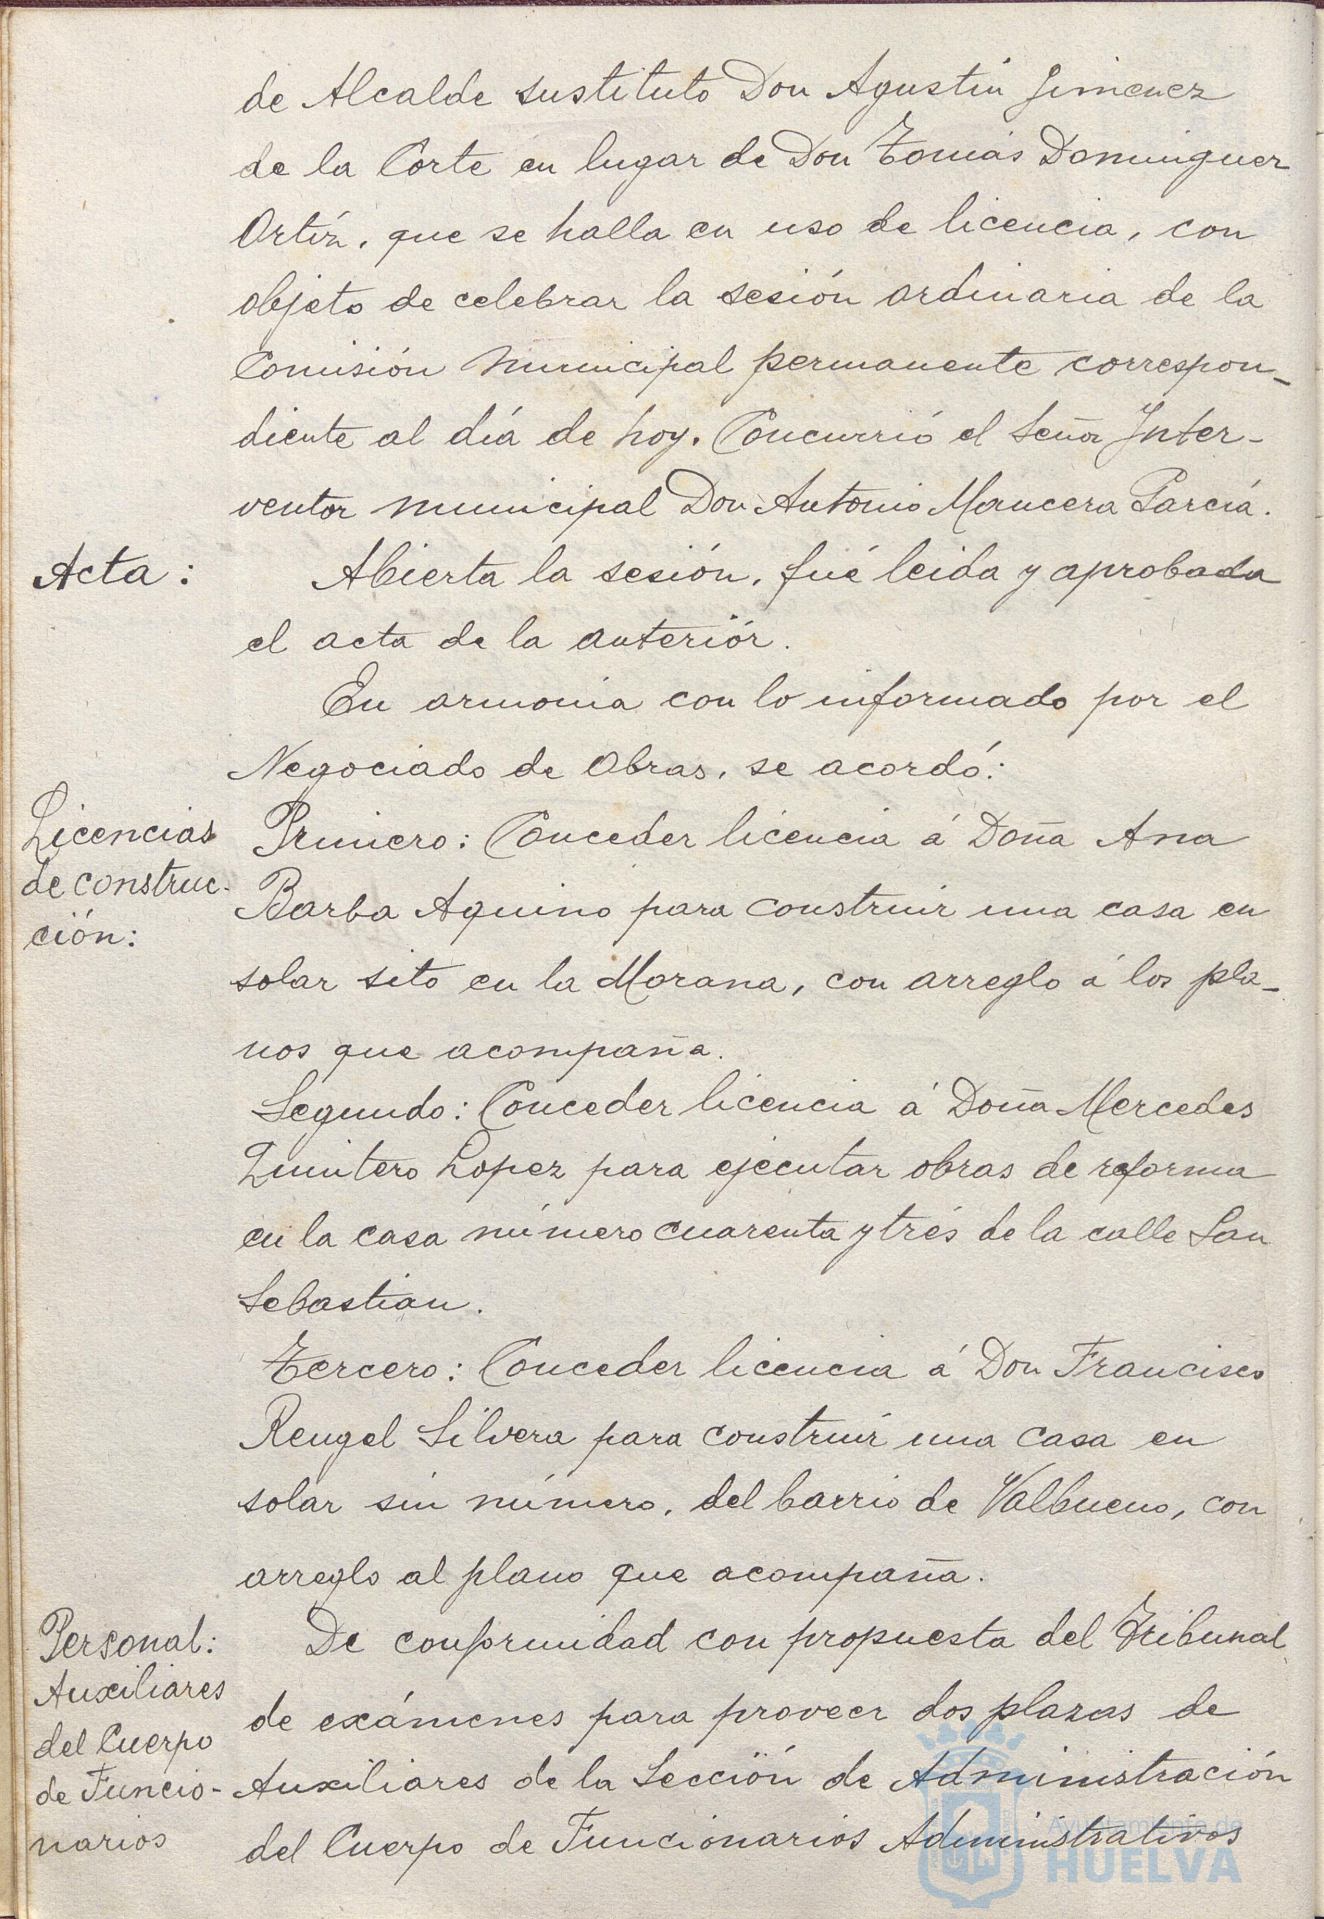 de Alcalde sustituto Don Agustín Jimenez
de la Corte en lugar de Don Tomás Dominguez
Ortíz, que se halla en uso de licencia, con
objeto de celebrar la sesión ordinaria de la
Comisión municipal permanente correspon-
diente al día de hoy. Concurrió el Señor Inter-
ventor municipal Don Antonio Mancera García.
Acta:
Abierta la sesión, fué leida y aprobada
el acta de la anteriór.
En armonia con lo informado por el
Negociado de Obras, se acordó:
Licencias
de construc-
ción:
Primero: Conceder licencia á Doña Ana
Barba Aquino para construir una casa en
solar sito en la Morana, con arreglo á los pla-
nos que acompaña.
Segundo: Conceder licencia á Doña Mercedes
Quintero Lopez para ejecutar obras de reforma
en la casa número cuarenta y trés de la calle San
Sebastian.
Tercero: Conceder licencia á Don Francisco
Rengel Silvera para construir una casa en
solar sin número, del barrio de Valbueno, con
arreglo al plano que acompaña.
Personal:
Auxiliares
del Cuerpo
de Funcio-
narios
De conformidad con propuesta del Tribunal
de exámenes para proveer dos plazas de
Auxiliares de la Sección de Administración
del Cuerpo de Funcionarios Administrativos
Ayuntamiento de
HUELVA